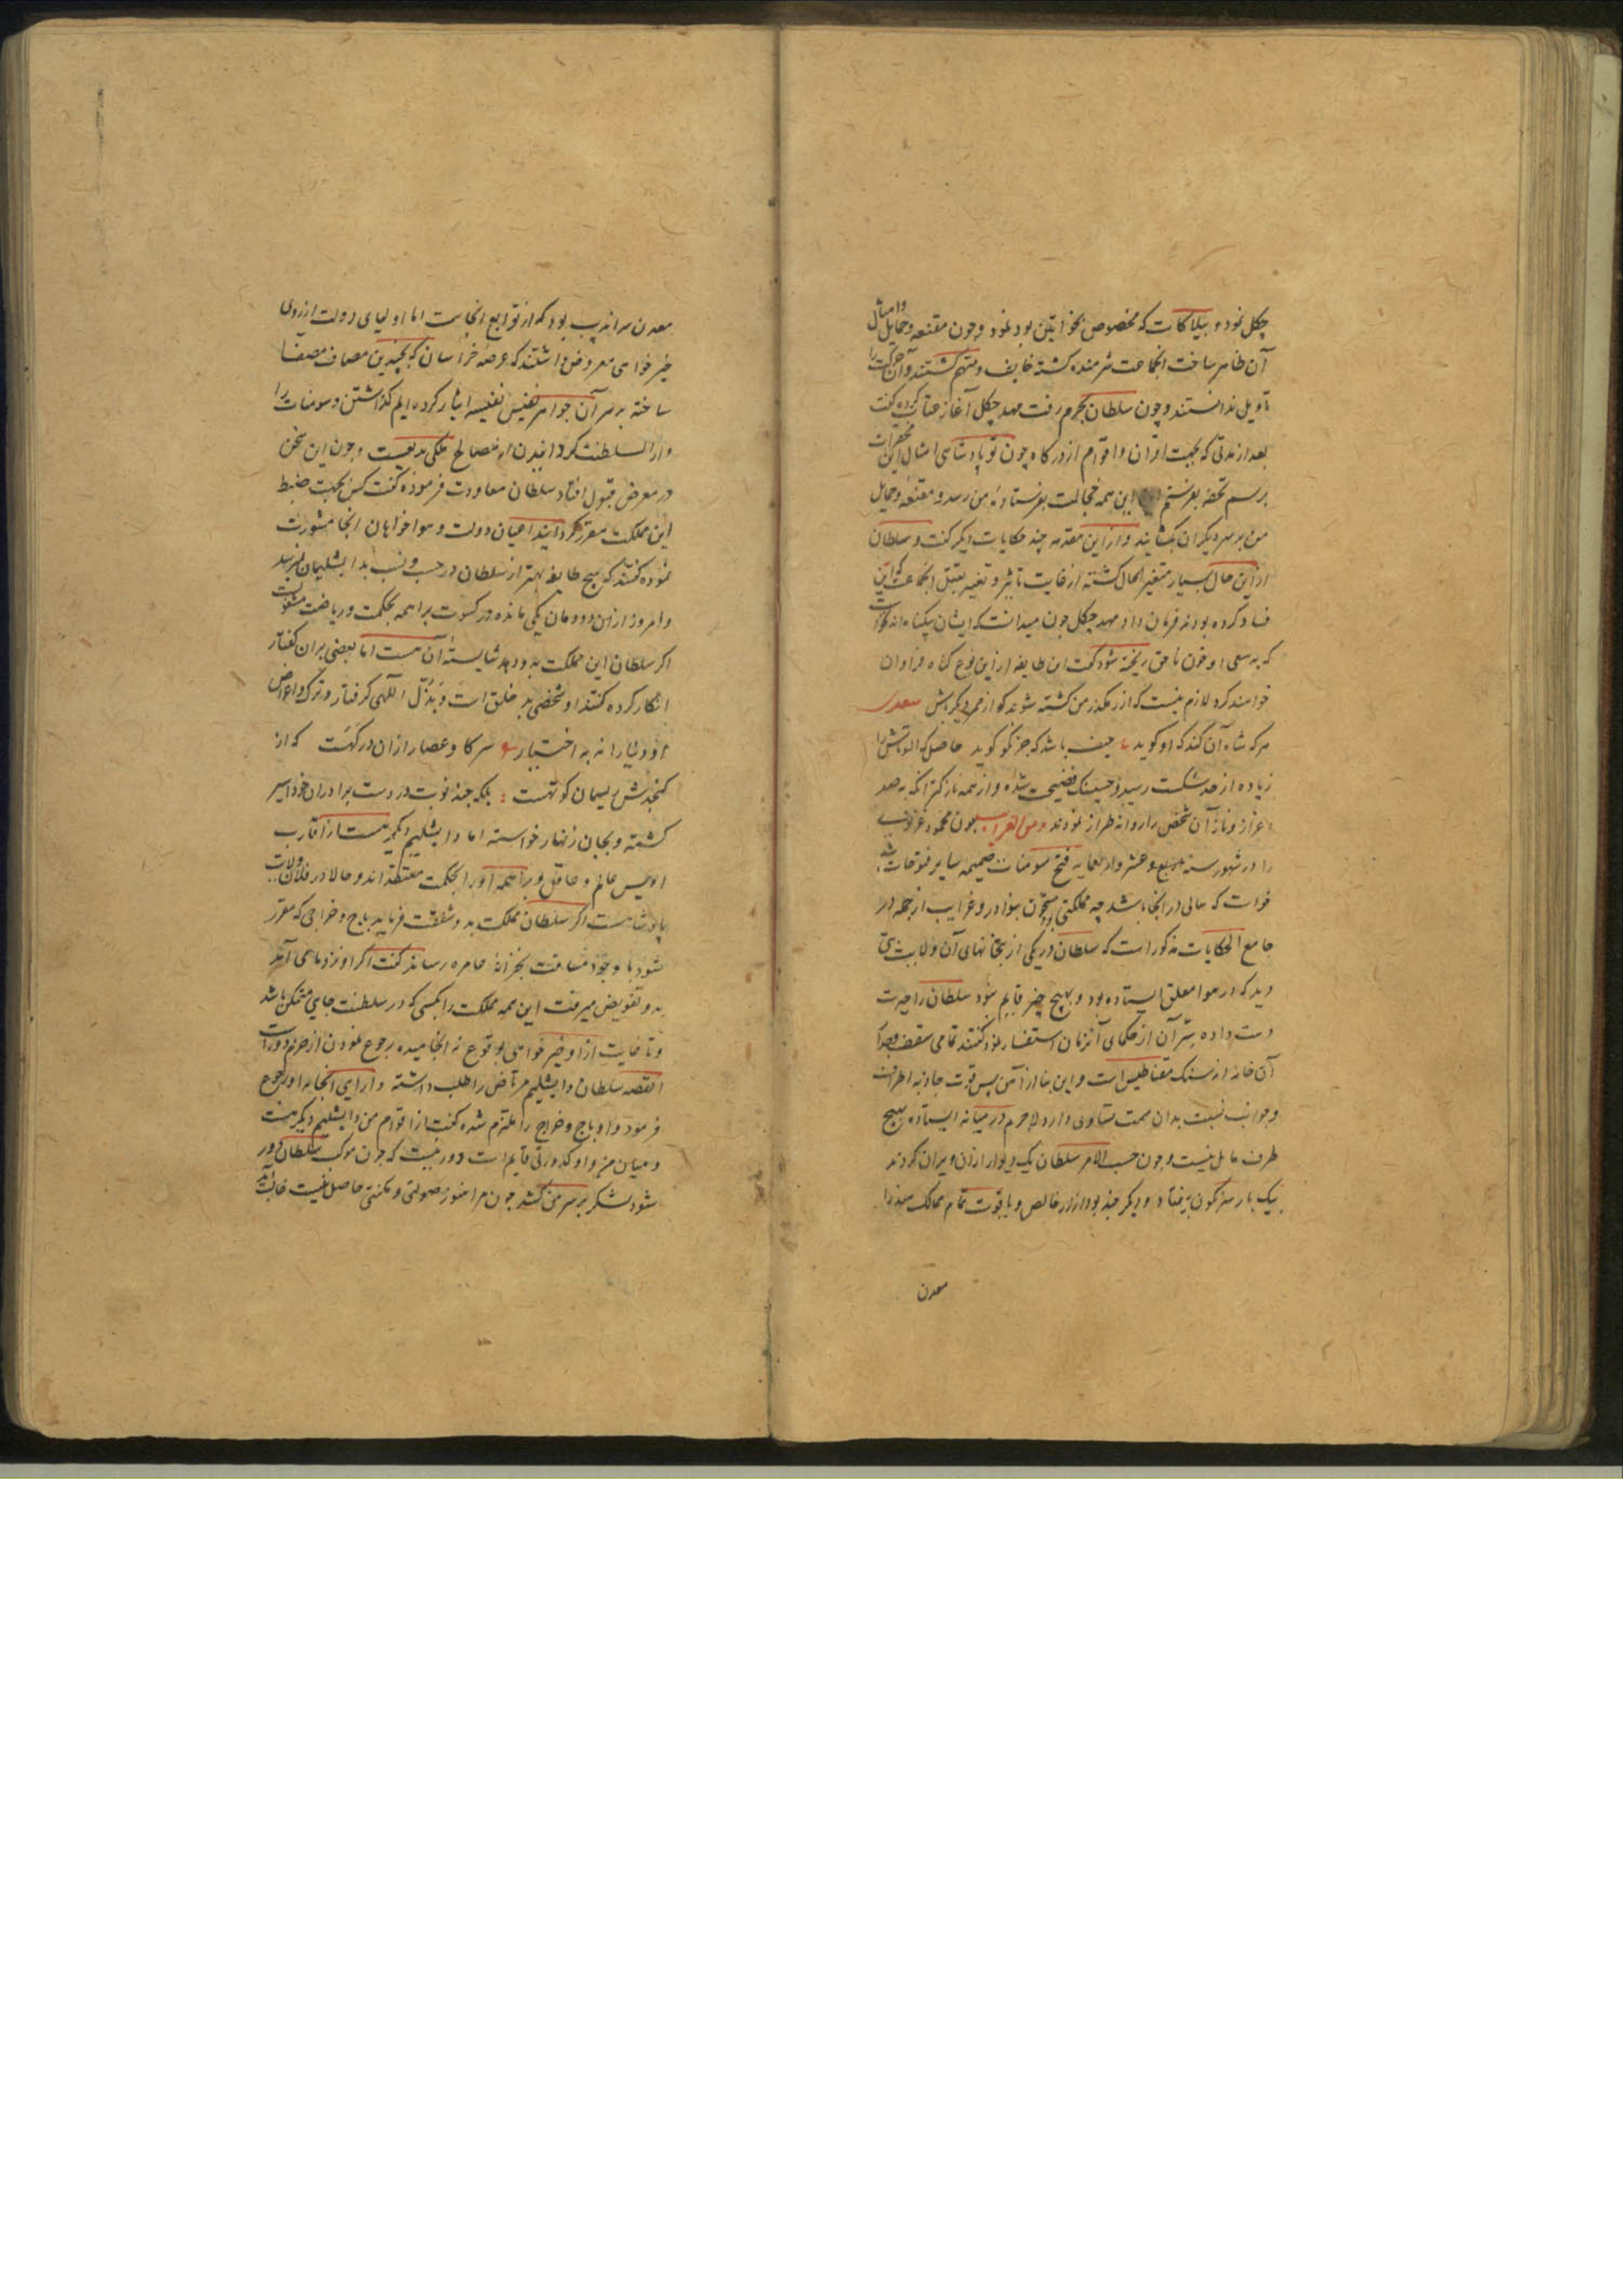 چکل نمود و بیلاکات که مخصوص بخواتین بود نمود و چون مقنعه و حمایل و امثال
آن ظاهر ساخت انجماعت شرمنده کشته خایف و متهم کشتند و آن حرکت را
تاویل ندانستند و چون سلطان بحرم رفت مهد چکل آغاز عتاب کرده کفت
بعد از مدتی که بجهت اقران و اقوام از درکاه چون تو پادشاهی امثال این محقرات
برسم تحفه بفرستم این همه خجالت بفرستاده من رسد و مقنعه و حمایل
من بر سر دیکران بکشایند و از این مقدمه چند حکایات دیکر کفت و سلطان
از این حال بسیار متغیر الحال کشته از غایت تاثیر و تغییر بقتل انجماعت که این
فساد کرده بودند فرمان داد و مهد چکل چون میدانست که ایشان بیکناه اند نخواست
که بسعی او خون ناحق ریخته شود کفت این طایفه از این نوع کناه فراوان
خواهند کرد لازم نیست که از رهکذر من کشته شوند کو از ممر دیکر باش سعدی
هر که شاه آن کند که او کوید حیف باشد که جز نکو کوید حاصل که التونتاش را
زیاده از حد شکست رسید و حسینک فضیحت شده و از همه نازکتر انکه به صد
اعزاز و ناز آن شخص را روانه طراز نمودند و من الغرایب چون محمود غزنوی
را در شهور سنه سبع و عشر و اربعمایه فتح سومنات ضمیمه سایر فتوحات شد
خواست که سالی در انجا باشد چه مملکتی بود مشحون بنوادر و غرایب از جمله در
جامع الحکایات مذکور است که سلطان در یکی از بتخانهای آن ولایت بتی
دید که در هوا معلق ایستاده بود و بهیچ چیز قایم نبود سلطان را حیرت
دست داده سر آن از حکمای آنزمان استفسار نمود کفتند تمامی سقف و جدار
آن خانه از سنک مقناطیس است و این بت از آهن پس قوت جاذبه اطراف
و جوانب نسبت بدان سمت تساوی دارد لاجرم در میانه ایستاده بهیچ
طرف مایل نیست و چون حسب الامر سلطان یک دیوار از آن ویران کردند
بیک بار سرنکون بیفتاد و دیکر چند بود از زر خالص و یاقوت تمام ممالک هند را
معدن
معدن سراندیب بود که از توابع انجاست اما اولیای دولت از روی
خیر خواهی معروض داشتند که عرصه خراسان که بچندین مصاف مصفا
ساخته بر سر آن جواهر نفیس نفیسه ایثار کرده ایم کذاشتن و سومنات را
دار السلطنت کردانیدن از مصالح ملکی بدیعست و چون این سخن
در معرض قبول افتاد سلطان معاودت فرموده کفت کسی بجهت ضبط
این مملکت مقرر کردانید اعیان دولت و هواخواهان انجا مشورت
نموده کفتند که هیچ طایفه بهتر از سلطان در حسب و نسب بدابشلیمان نرسد
و امروز ازین دودمان یکی مانده در کسوت براهمه بحکمت و ریاضت مشغولست
اکر سلطان این مملکت بدو دهد شایسته آن هست اما بعضی بر ان کفتار
انکار کرده کفتند او شخصی بد خلق است و بذل الهی کرفتار و ترک و اعراض
او دنیا را نه به اختیار سر کاو عصار ازان در کهست که از
کنجدش ریسمان کوتهست بلکه چند نوبت در دست برادران خود اسیر
کشته و بجان زنهار خواسته اما دابشلیم دیکر هست از اقارب
او بس عالم و عاقل و براهمه او را بحکمت معتقد اند و حالا در فلان ولایت
پادشاهست اکر سلطان مملکت بدو شفقت فرماید باج و خراجی که مقرر
شود با وجود مسافت بخزانه عامره رساند کفت اکر او نزد ما می آمد
بدو تفویض میرفت این همه مملکت را بکسی که در سلطنت جایی متمکن باشد
و تا غایت از او خیر خواهی بوقوع نه انجامیده رجوع نمودن از حزم دور است
القصه سلطان دابشلیم مرتاض را طلب داشته دارایی انجا به او رجوع
فرمود و او باج و خراج را ملتزم شده کفت از اقوام من دابشلیم دیکر هست
و میان من و او کدورتی قایم است دور نیست که چون موکب سلطان دور
شود لشکر بر سر من کشد چون مرا هنوز صولتی و مکنتی حاصل نیست غالب آید